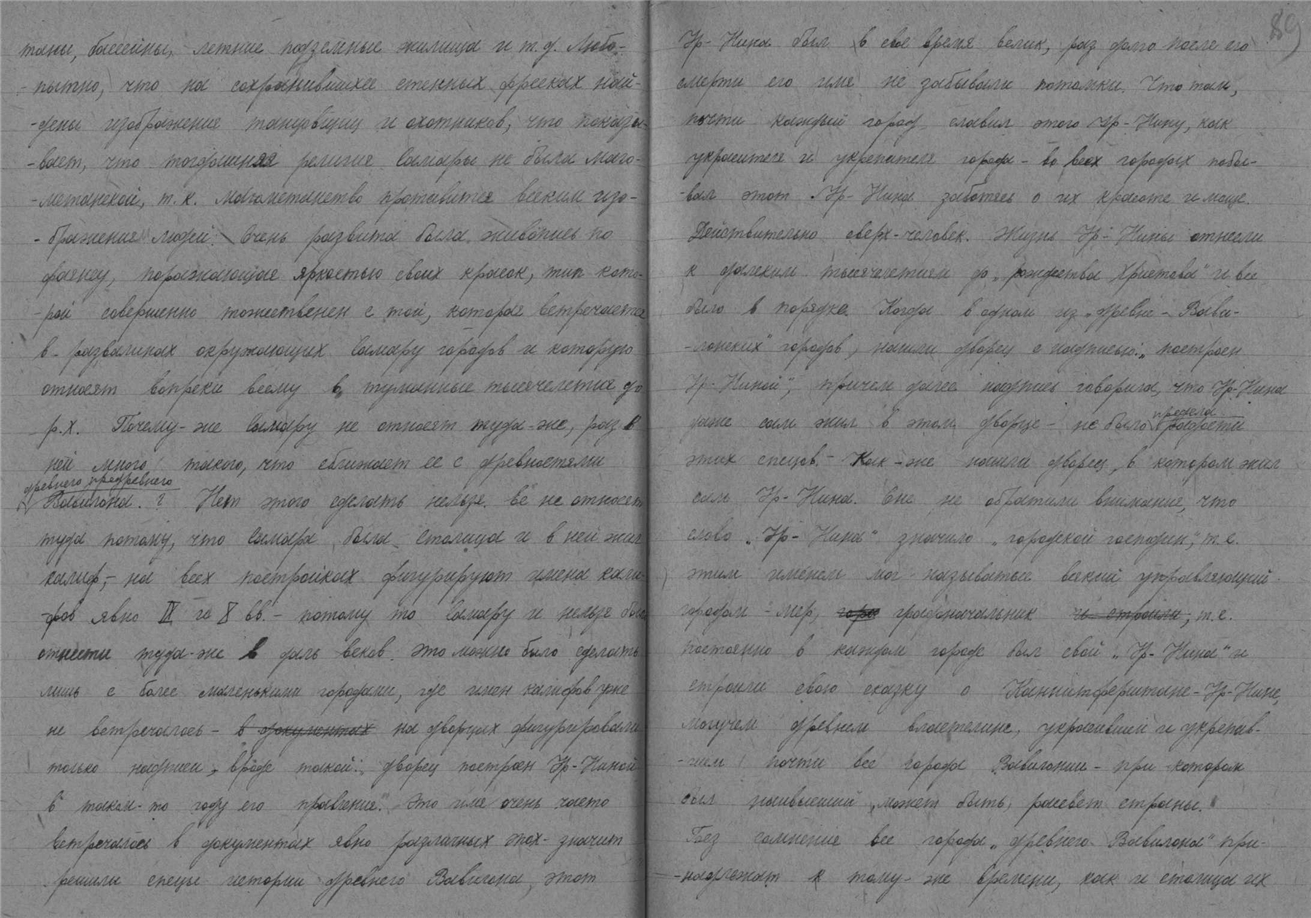 таны, бассейны, летние подземные жилища и т.д. Любо-
-пытно, что на сохранившихся стенных фресках най-
-дены изображение танцовщиц и охотников, что показы-
-вает, что тогдашняя религия Самары не была маго-
-метанской, т.к. магометанство противится всяким изо-
-бражениям людей. Очень развита была живопись по
фаянсу, поражающая яркостью своих красок, тип кото-
-рой совершенно тожественен с той, которая встречается
в развалинах окружающих Самару городов и которую
относят вопреки всему в туманные тысячелетия до
р.х. Почему-же Самару не относят туда-же, раз в
ней много такого, что сближает ее с древностями
древнего предревнего
Вавилона.? Нет этого сделать нельзя. Её не относят
туда потому, что Самара была столица и в ней жил
калиф,- на всех постройках фигурируют имена кали-
фов явно IX го X вв.- потому то Самару и нельзя было
отнести туда-же в даль веков. Это можно было сделать
лишь с более маленькими городами, где имен калифов уже
не встречалось - в документах на дворцах фигурировали
только надписи, вроде такой: дворец построен Ур-Ниной
в таком-то году его правления". Это имя очень часто
встречалось в документах явно различных эпох- значит
решили спецы истории древнего Вавилона, этот
89
Ур-Нина был в свое время велик, раз долго после его
смерти его имя не забывали потомки. Что там,
почти каждый город славил этого Ур-Нину, как
украшителя и укрепителя города - во всех городах побы-
-вал этот Ур-Нина заботясь о их красоте и мощи.
Действительно сверх-человек. Жизнь Ур-Нины отнесли
к далеким тысячелетиям до „рождества Христова" и все
было в порядке. Когда в одном из „древне-Вави-
-лонских" городов, нашли дворец с надписью: „построен
Ур-Ниной", причем далее надпись говорила, что Ур-Нина
даже сам жил в этом дворце - не было радости
предела
этих спецов.- Как-же нашли дворец, в котором жил
сам Ур-Нина. Они не обратили внимание, что
слово „Ур-Нина" значило „городской господин", т.е.
этим именем мог называться всякий управляющий
городом - мэр, горо градоначальник; т.е.
постоянно в каждом городе был свой „Ур-Нина" и
строили свою сказку о Каннитферштане-Ур-Нине,
могучем древнем властелине, украсившим и укрепив-
-шим почти все города Вавилонии - при котором
был наивысший „может быть, расцвет страны."
Без сомнения все города „древнего Вавилона" при-
-надлежат к тому-же времени, как и столица их